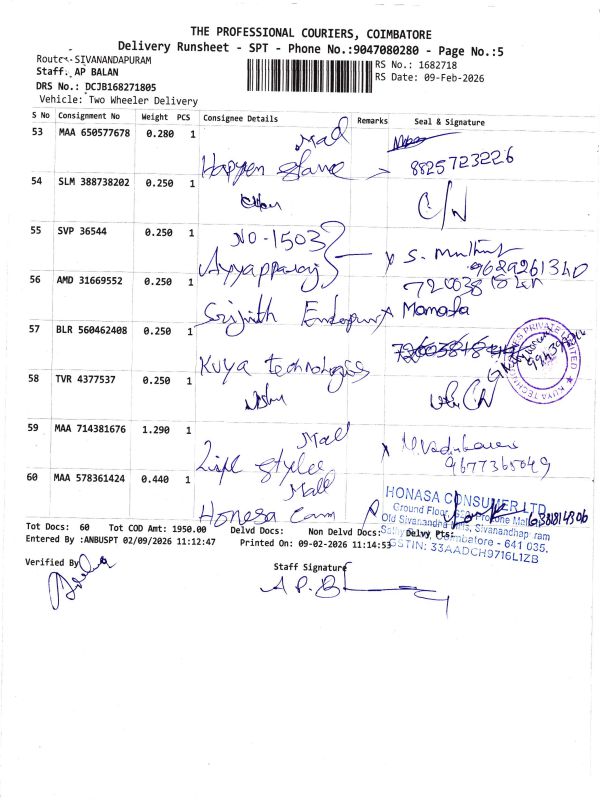 THE PROFESSIONAL COURIERS, COIMBATORE
Delivery Runsheet - SPT - Phone No.:9047080280 - Page No.:5
Route: SIVANANDAPURAM
RS No.: 1682718
Staff: AP BALAN
RS Date: 09-Feb-2026
DRS No.: DCJB168271805
Vehicle: Two Wheeler Delivery
S No Consignment No Weight PCS Consignee Details Remarks Seal & Signature
53 MAA 650577678 0.280 1
Mall
8825723226
54 SLM 388738202 0.250 1
C/N
55 SVP 36544 0.250 1
NO-1503
Ayyapparaj
S.
9629261340
56 AMD 31669552 0.250 1
Srijith
Mamata
57 BLR 560462408 0.250 1
Kuya technologies
KUYA TECHNOLOGIES PRIVATE LIMITED
58 TVR 4377537 0.250 1
C/N
59 MAA 714381676 1.290 1
Mall
9677365049
60 MAA 578361424 0.440 1
Mall
Honasa
HONASA CONSUMER LTD.
Ground Floor, Prozone Mall
Old Sivanandha Mills, Sivanandhapuram
Coimbatore - 641 035.
GSTIN: 33AADCH9716L1ZB
Tot Docs: 60 Tot COD Amt: 1950.00 Delvd Docs: Non Delvd Docs: Delvy Pts:
Entered By :ANBUSPT 02/09/2026 11:12:47 Printed On: 09-02-2026 11:14:53
Verified By
Staff Signature
A.P.B